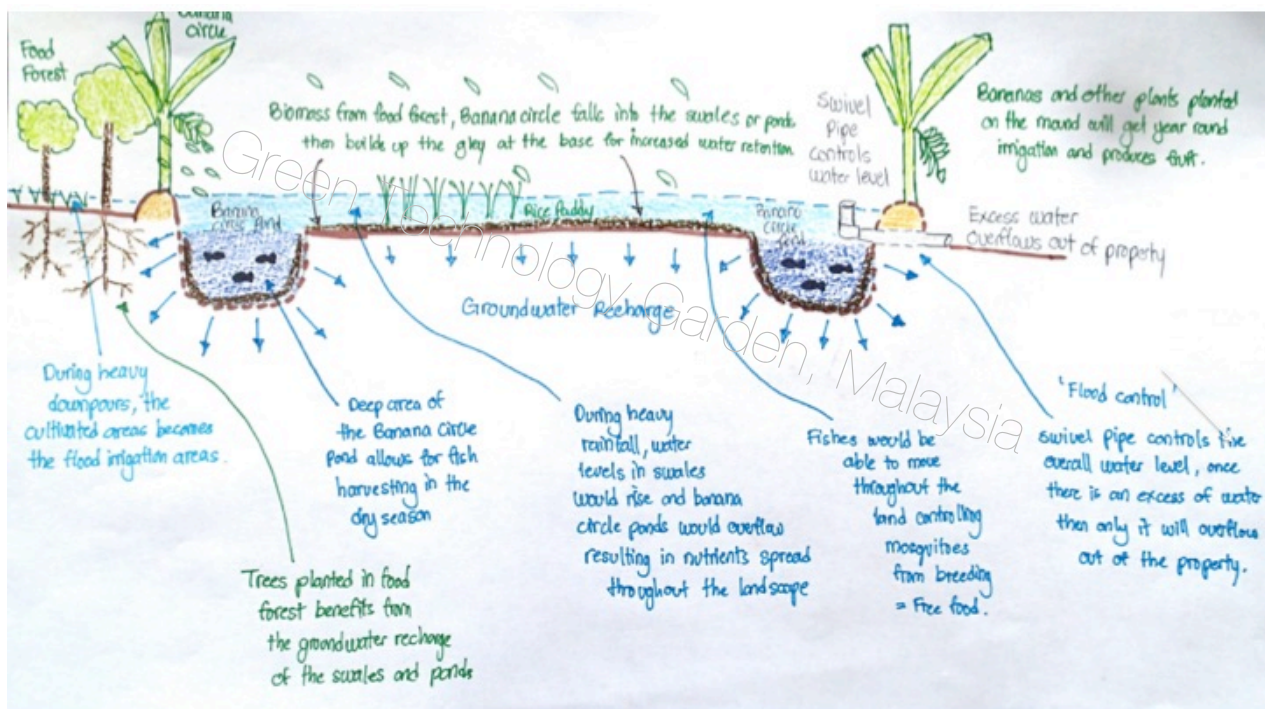 Banana
circle
Food
Forest
Biomass from food forest, Banana circle falls into the swales or ponds
then builds up the gley at the base for increased water retention
Swivel
Pipe
controls
water level
Bananas and other plants planted
on the mound will get year round
irrigation and produces fruit.
Banana
circle Pond
Rice Paddy
Banana
circle
Pond
Excess water
overflows out of property
Groundwater Recharge
During heavy
downpours, the
cultivated areas becomes
the flood irrigation areas.
Deep area of
the Banana Circle
Pond allows for fish
harvesting in the
dry season
During heavy
rainfall, water
levels in swales
would rise and banana
circle ponds would overflow
resulting in nutrients spread
throughout the landscape
Fishes would be
able to move
throughout the
land controlling
mosquitoes
from breeding
= Free food.
'Flood control'
Swivel pipe controls the
overall water level, once
there is an excess of water
then only it will overflow
out of the property.
Trees planted in food
forest benefits from
the groundwater recharge
of the swales and ponds
Green Technology Garden, Malaysia